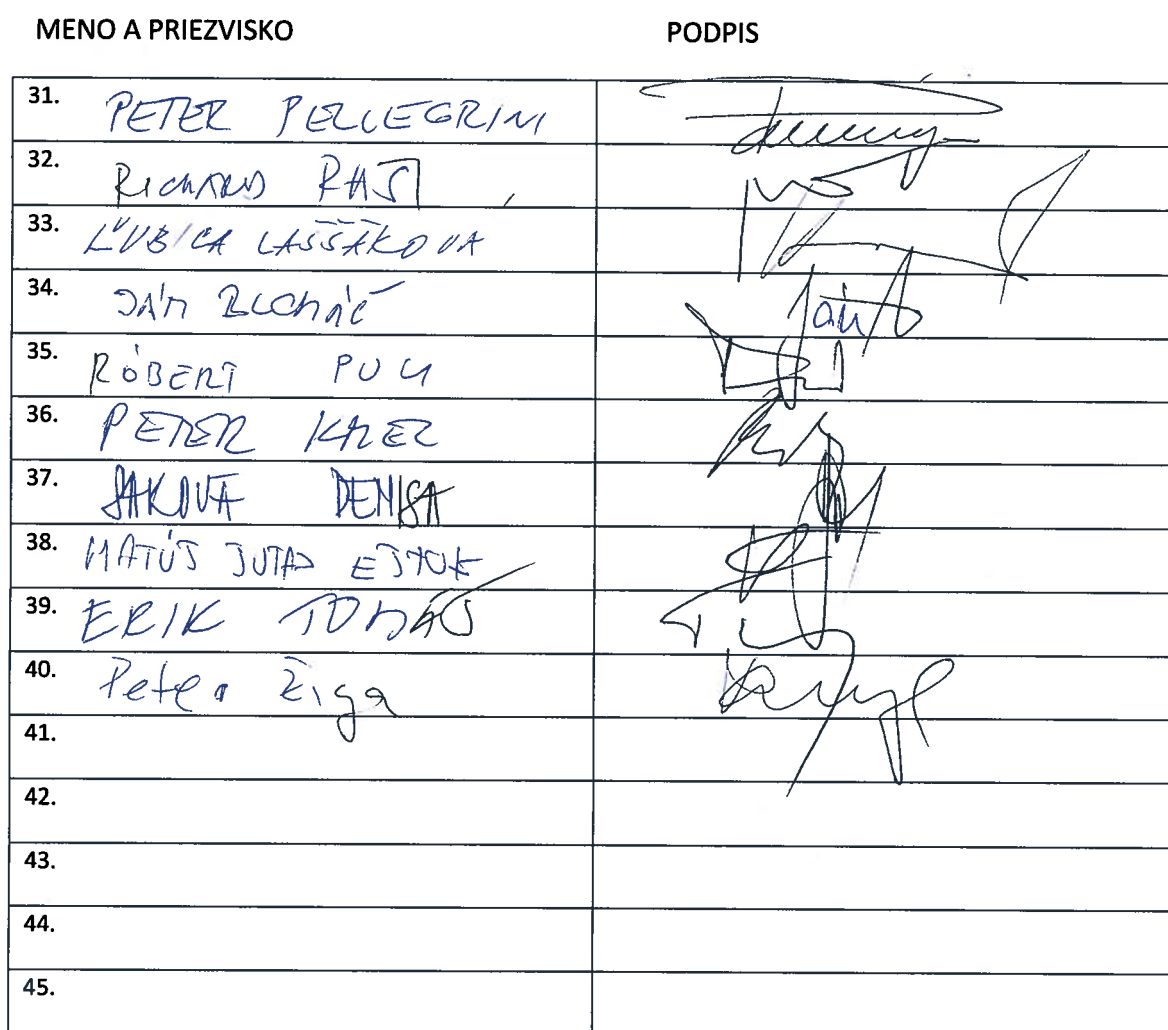 MENO A PRIEZVISKO PODPIS
31. PETER PELLEGRINI
32. RICHARD RAŠI
33. ĽUBICA LAŠŠÁKOVÁ
34. JÁN BLCHÁČ
35. RÓBERT PUCI
36. PETER KMEC
37. SAKOVÁ DENISA
38. MATÚŠ ŠUTAJ EŠTOK
39. ERIK TOMÁŠ
40. Peter Žiga
41.
42.
43.
44.
45.